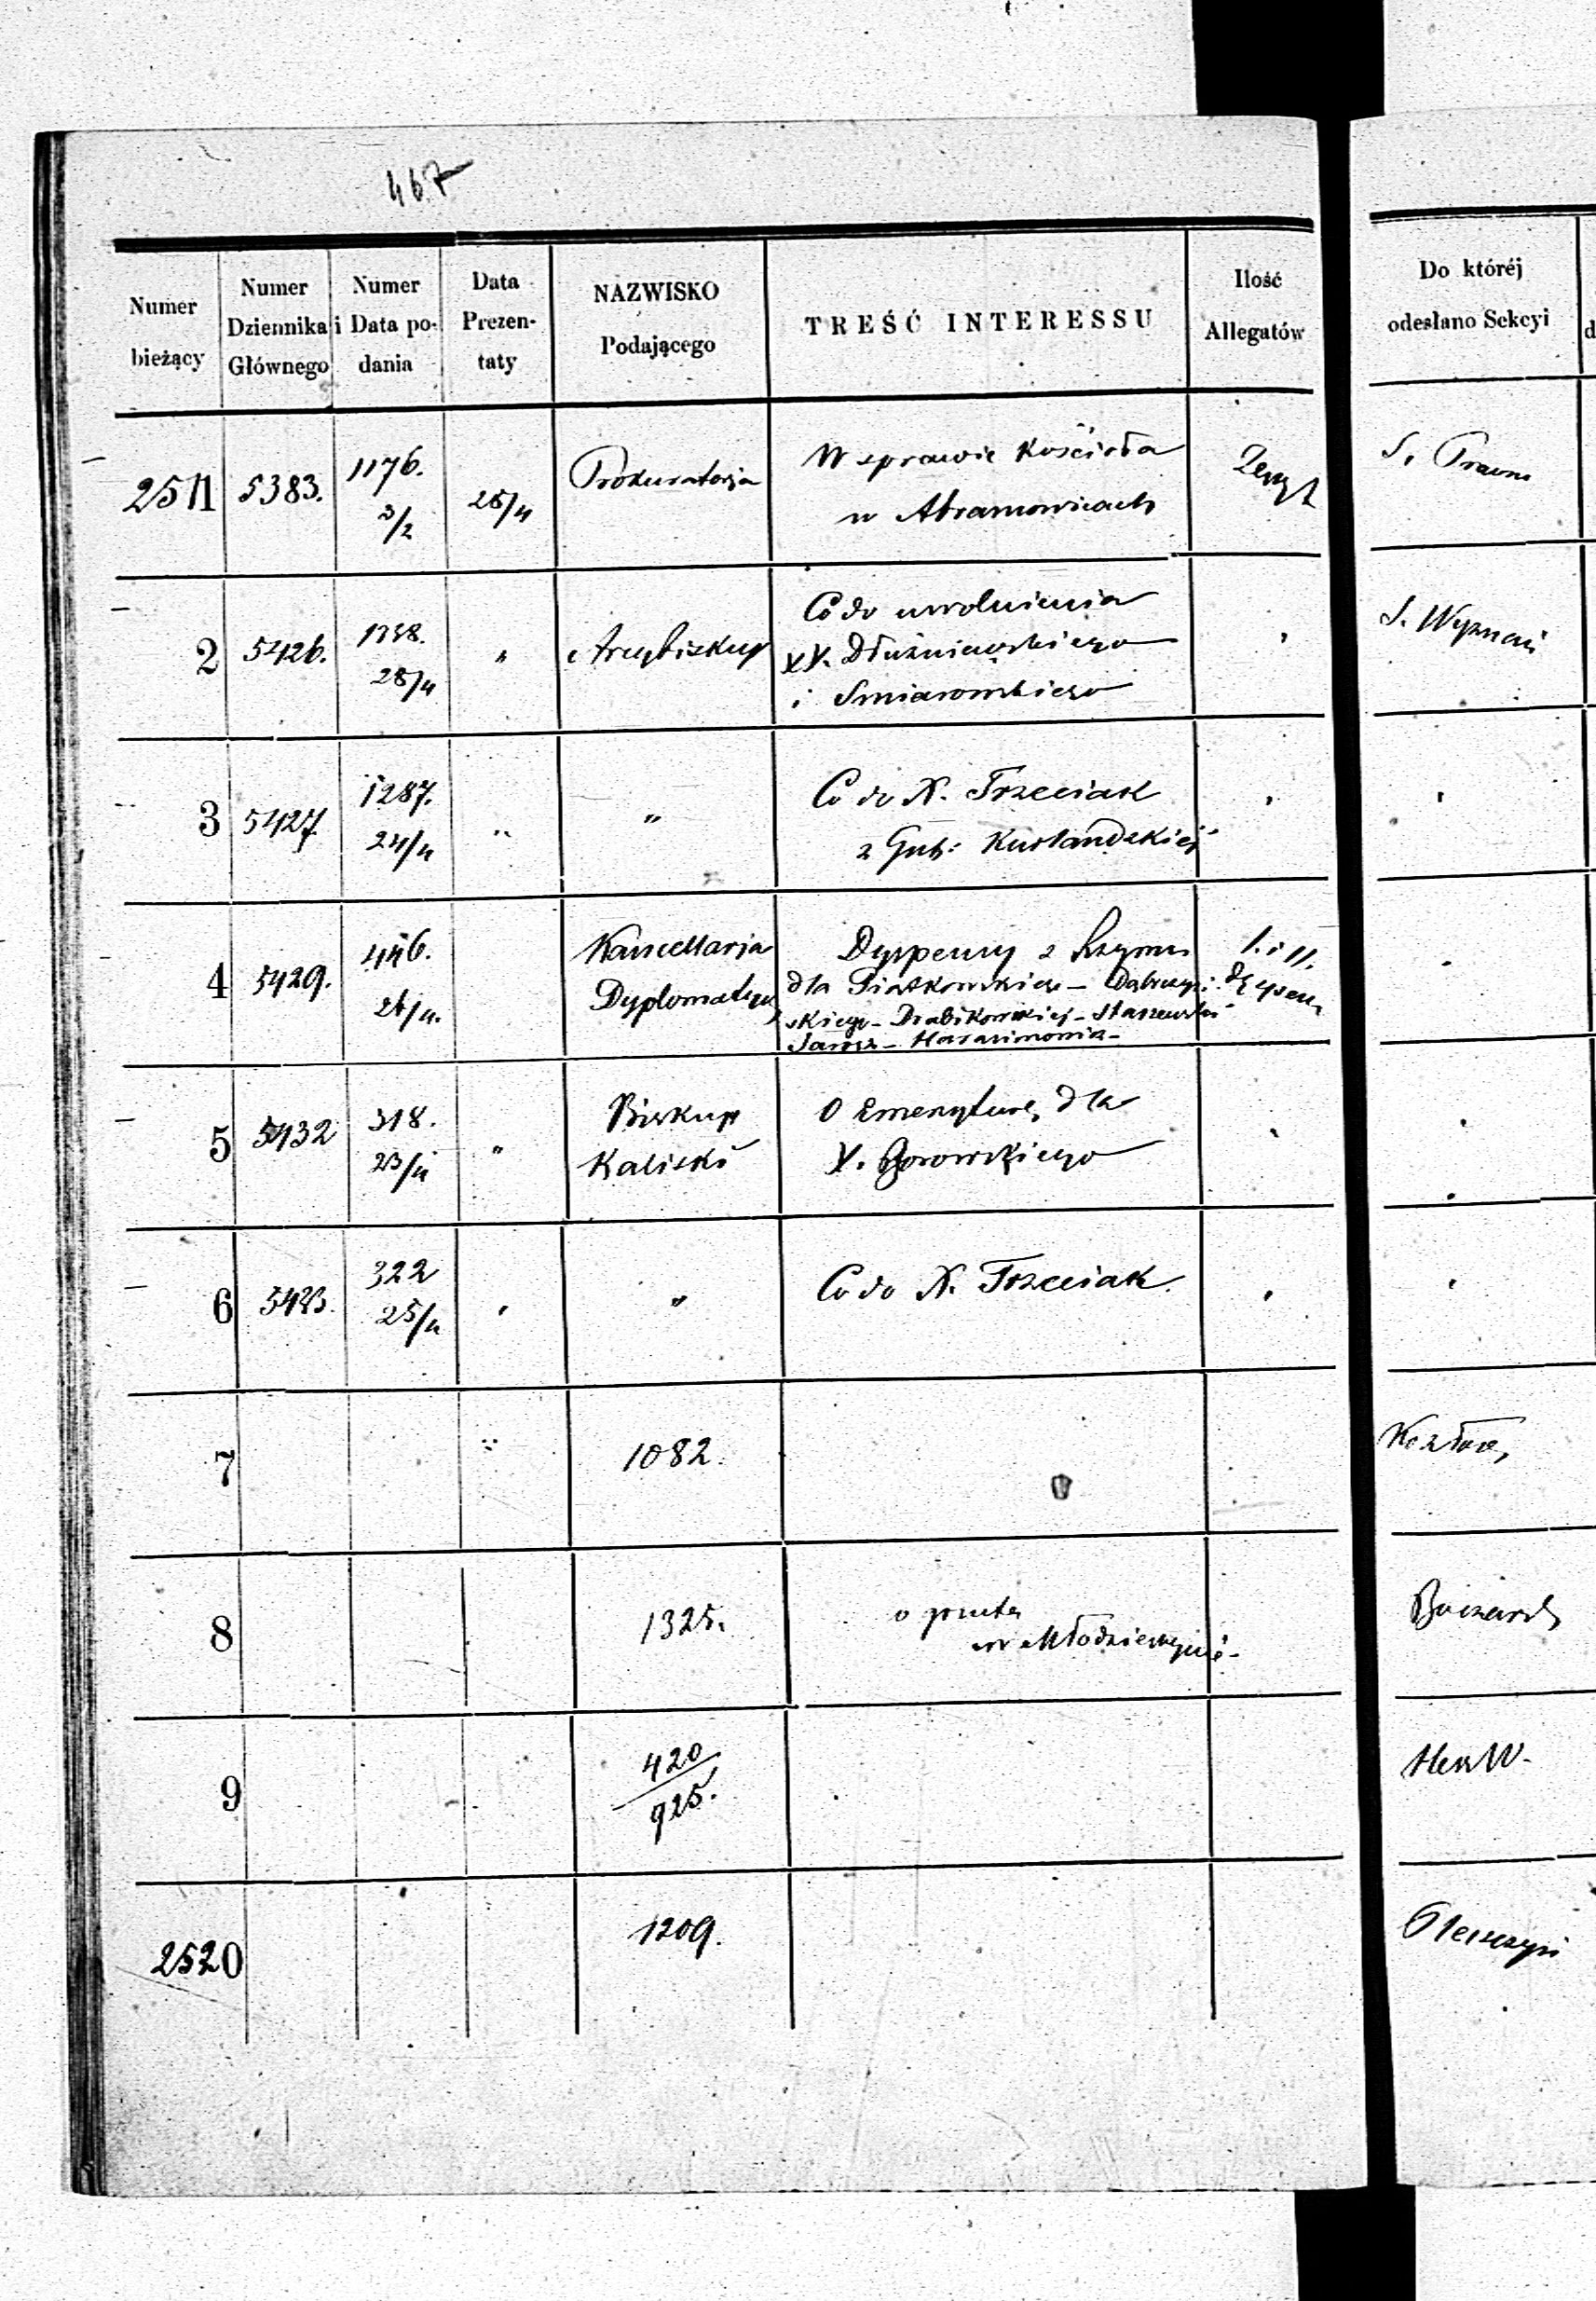 467
Numer bieżący
Numer Dziennika Głównego
Numer i Data podania
Data Prezentaty
NAZWISKO Podającego
TREŚĆ INTERESSU
Ilość Allegatów
Do któréj odesłano Sekcyi
2511 5383. 1176. 3/2 28/4 Prokuratorja W sprawie Kościoła
w Abramowicach
S. Prawn
2 5426. 28/4 " Arcybiskup Co do uwolnienia
XX. Dłużniewskiego
i Smiarowskiego
S. Wyznań
3 5427 1287. 24/4 " " Co do N. Trzeciak
z Gub: Kurlandzkiéj
4 5429. 446. 26/4. Kancellaria
Dyplomatycz
Dyspensy z Rzymu
dla Piątkowskiego – Dobrzyń-
skiego – Drabikowskiej – Staszewski
Jarosz – Harasimowicz –
5 5432 318. 23/4 " Biskup
Kaliski
O Emeryturę dla
X. Gorowskiego
6 5433. 322 25/4 " " Co do N. Trzeciak.
7 1082.
8 1325. o
w Młodzieszynie –
9 420
925.
2520 1209.